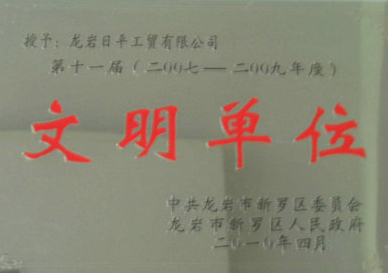 授予：龙岩日平工贸有限公司
第十一届（二00七——二00九年度）
文明单位
中共龙岩市新罗区委员会
龙岩市新罗区人民政府
二0一0年四月